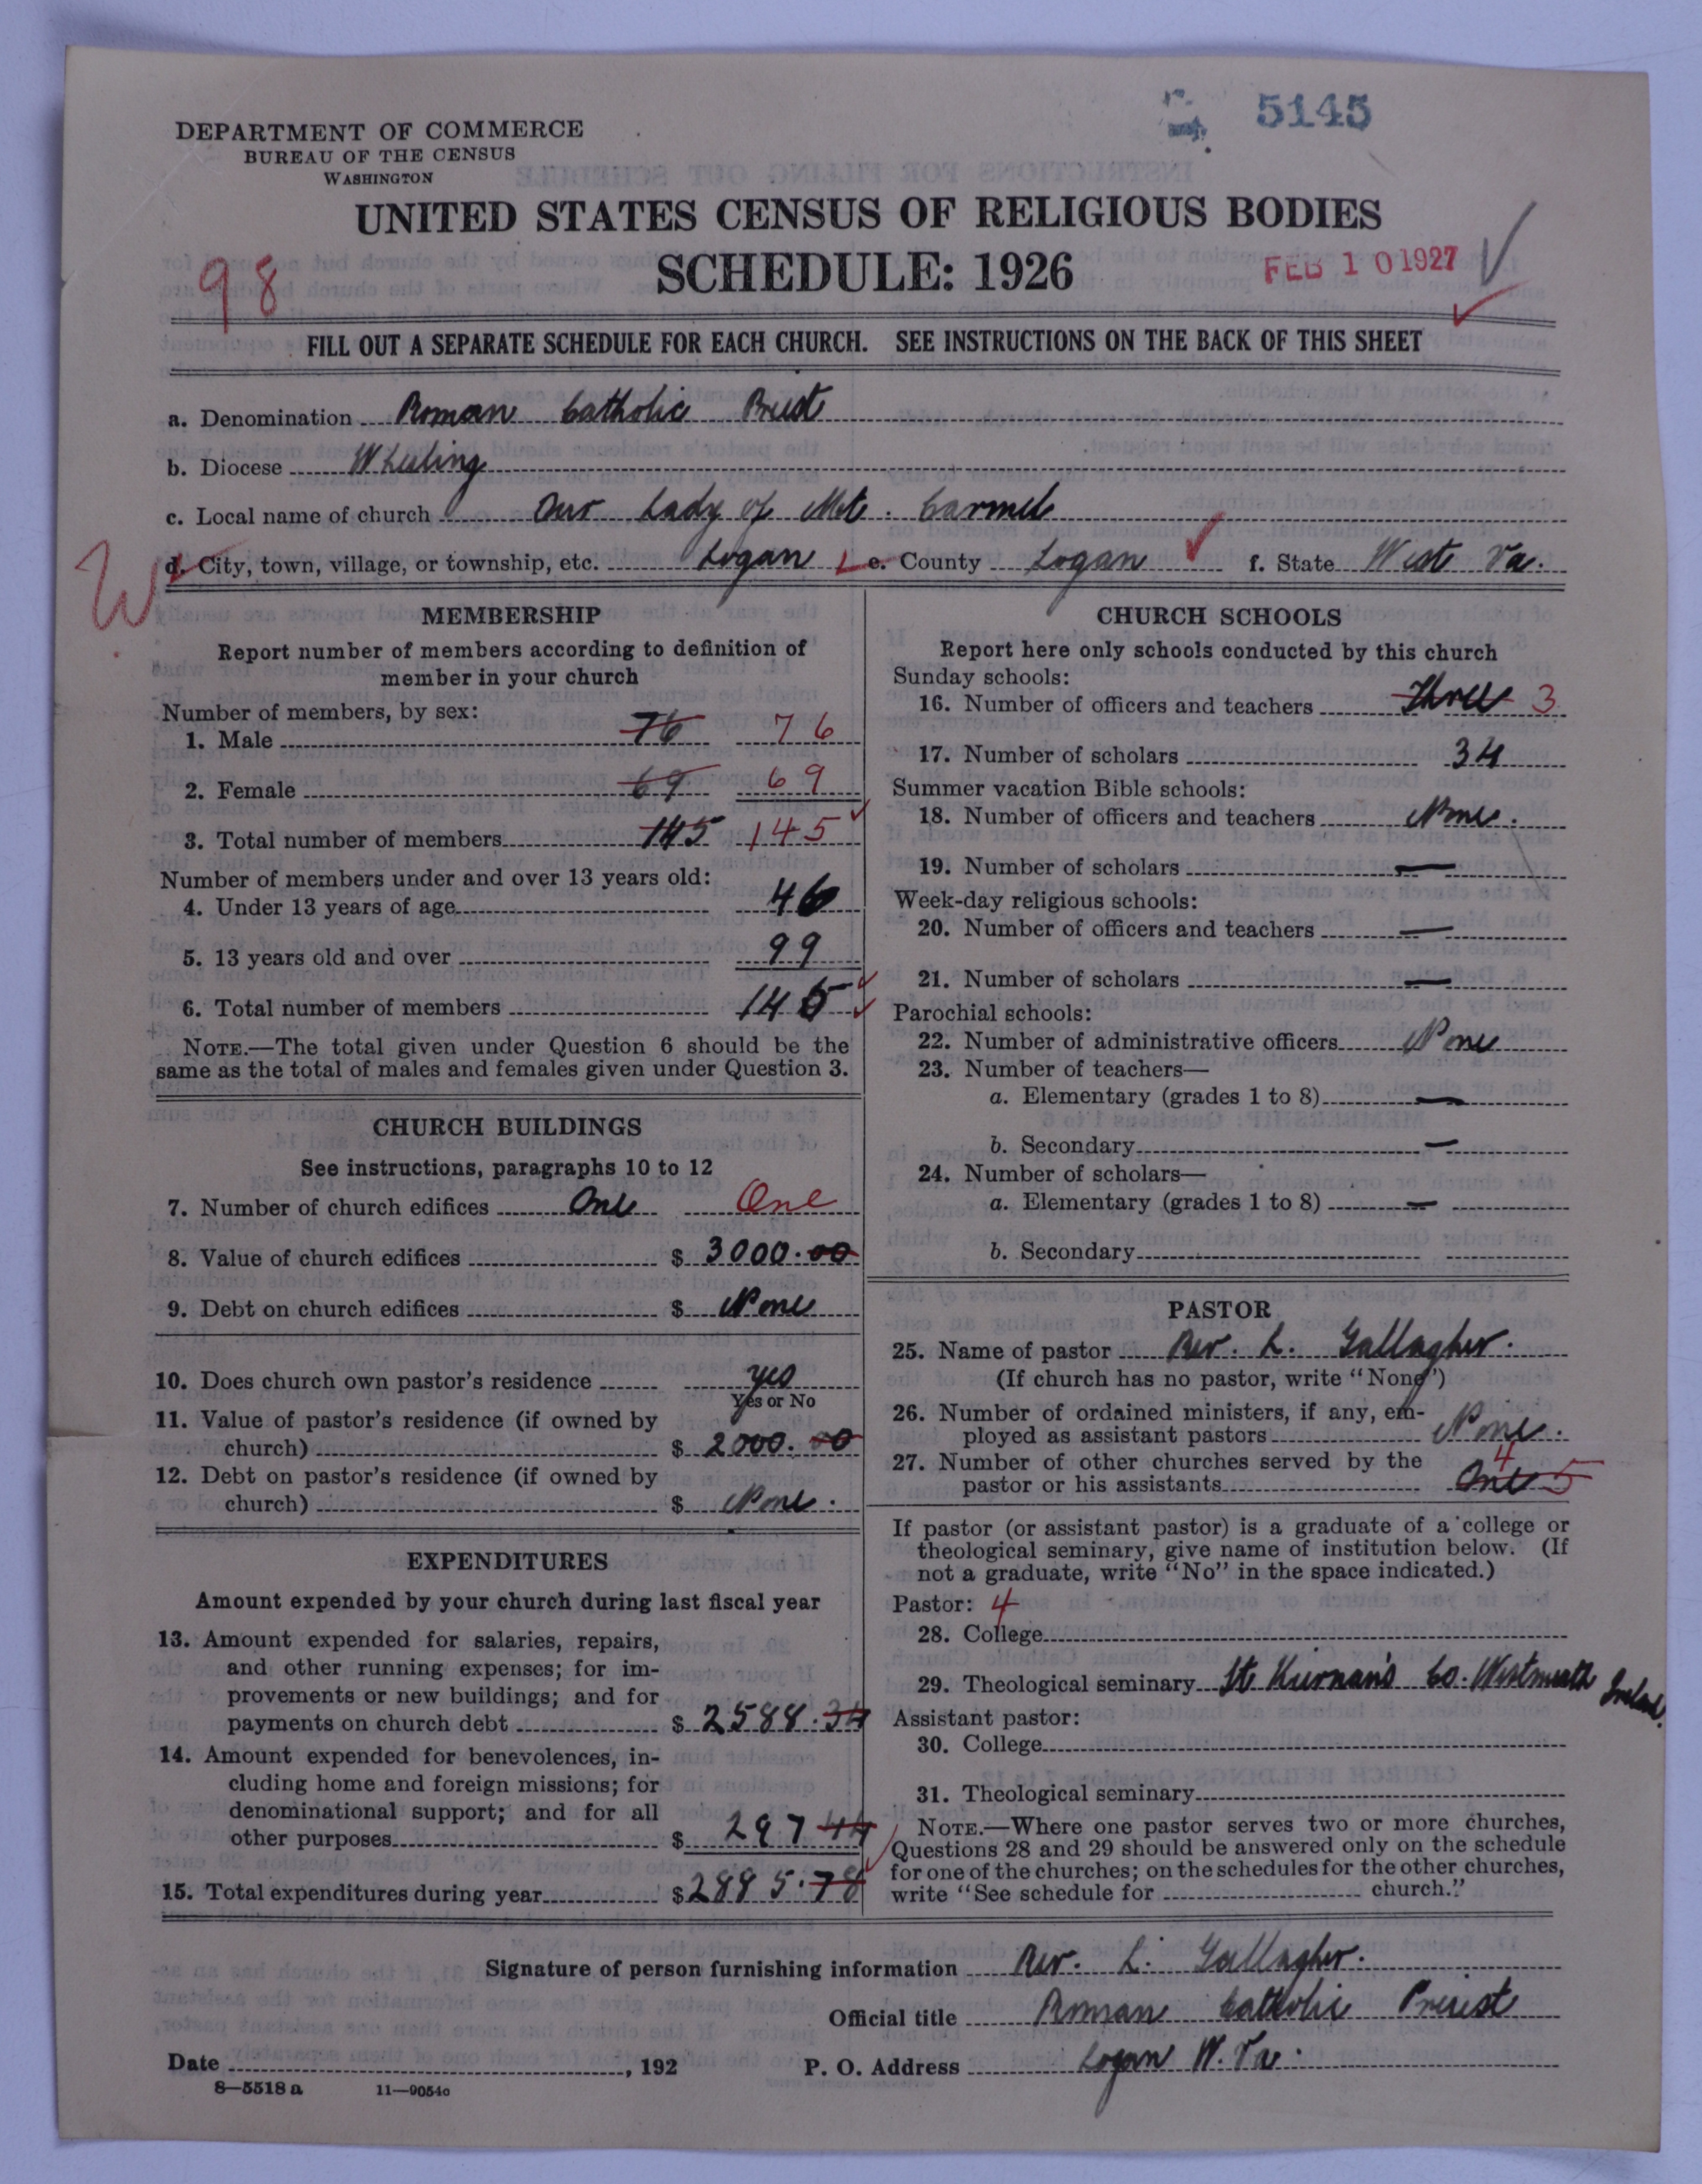 5145
DEPARTMENT OF COMMERCE
BUREAU OF THE CENSUS
WASHINGTON
UNITED STATES CENSUS OF RELIGIOUS BODIES
SCHEDULE: 1926
FEB 10 1927
98
FILL OUT A SEPARATE SCHEDULE FOR EACH CHURCH. SEE INSTRUCTIONS ON THE BACK OF THIS SHEET
a. Denomination Roman Catholic Priest
b. Diocese Wheeling
c. Local name of church Our Lady of Mt. Carmel
W
d. City, town, village, or township, etc. Logan e. County Logan f. State West Va.
MEMBERSHIP
Report number of members according to definition of
member in your church
Number of members, by sex:
1. Male 76 76
2. Female 69 69
3. Total number of members 145 145
Number of members under and over 13 years old:
4. Under 13 years of age 46
5. 13 years old and over 99
6. Total number of members 145
NOTE.—The total given under Question 6 should be the
same as the total of males and females given under Question 3.
CHURCH BUILDINGS
See instructions, paragraphs 10 to 12
7. Number of church edifices One One
8. Value of church edifices $ 3000.00
9. Debt on church edifices $ None
10. Does church own pastor's residence yes
Yes or No
11. Value of pastor's residence (if owned by
church) $ 2000.00
12. Debt on pastor's residence (if owned by
church) $ None.
EXPENDITURES
Amount expended by your church during last fiscal year
13. Amount expended for salaries, repairs,
and other running expenses; for im-
provements or new buildings; and for
payments on church debt $ 2588.34
14. Amount expended for benevolences, in-
cluding home and foreign missions; for
denominational support; and for all
other purposes $ 297 44
15. Total expenditures during year $ 2885.78
CHURCH SCHOOLS
Report here only schools conducted by this church
Sunday schools:
16. Number of officers and teachers Three 3
17. Number of scholars 34
Summer vacation Bible schools:
18. Number of officers and teachers None.
19. Number of scholars —
Week-day religious schools:
20. Number of officers and teachers —
21. Number of scholars —
Parochial schools:
22. Number of administrative officers None
23. Number of teachers—
a. Elementary (grades 1 to 8) —
b. Secondary —
24. Number of scholars—
a. Elementary (grades 1 to 8) —
b. Secondary
PASTOR
25. Name of pastor Rev. L. Gallagher.
(If church has no pastor, write "None")
26. Number of ordained ministers, if any, em-
ployed as assistant pastors None.
27. Number of other churches served by the 4
pastor or his assistants One 5
If pastor (or assistant pastor) is a graduate of a college or
theological seminary, give name of institution below. (If
not a graduate, write "No" in the space indicated.)
Pastor: 4
28. College
29. Theological seminary St Kiernan's Co. Westmeath Ireland.
Assistant pastor:
30. College
31. Theological seminary
NOTE.—Where one pastor serves two or more churches,
Questions 28 and 29 should be answered only on the schedule
for one of the churches; on the schedules for the other churches,
write "See schedule for church."
Signature of person furnishing information Rev. L. Gallagher.
Official title Roman Catholic Preist
Date , 192 P. O. Address Logan W. Va.
8—5518 a 11—9054c